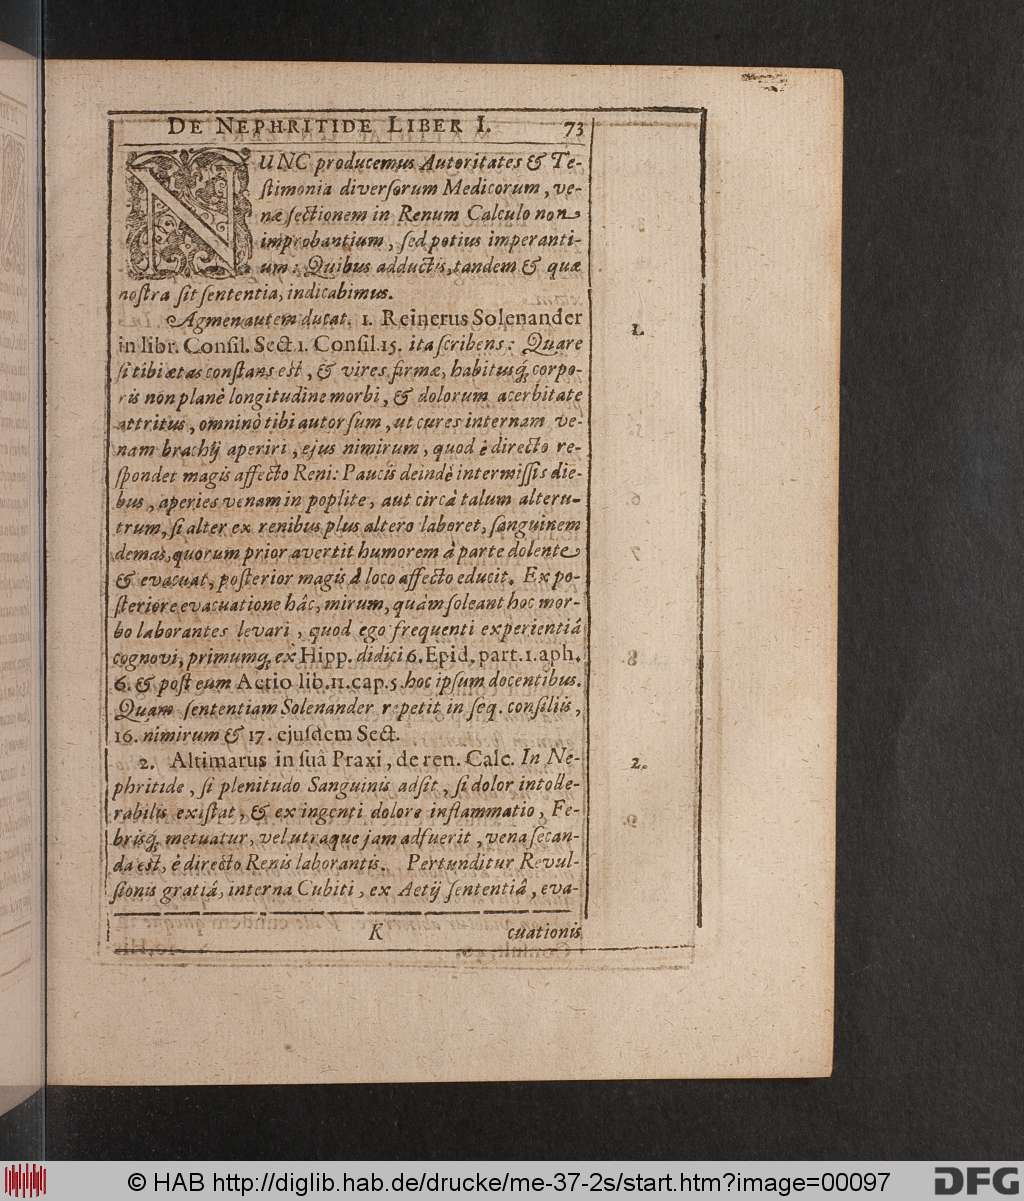 DE NEPHRITIDE LIBER I. 73
NUNC producemus Autoritates & Te-
ſtimonia diverſorum Medicorum, ve-
næ ſectionem in Renum Calculo non
improbantium, ſed potius imperanti-
um: Quibus adductis, tandem & quæ
noſtra ſit ſententia, indicabimus.
Agmen autem ducat. 1. Reinerus Solenander
in libr. Conſil. Sect. 1. Conſil. 15. ita ſcribens: Quare
ſi tibi ætas conſtans est, & vires firmæ, habitusq́; corpo-
ris non planè longitudine morbi, & dolorum acerbitate
attritus, omninò tibi autor ſum, ut cures internam ve-
nam brachij aperiri, ejus nimirum, quod è directo re-
ſpondet magis affecto Reni: Paucis deindè intermiſſis die-
bus, aperies venam in poplite, aut circà talum alteru-
trum, ſi alter ex renibus plus altero laboret, ſanguinem
demas, quorum prior avertit humorem à parte dolente
& evacuat, poſterior magis à loco affecto educit. Ex po-
ſteriore evacuatione hâc, mirum, quàm ſoleant hoc mor-
bo laborantes levari, quod ego frequenti experientiâ
cognovi, primumq; ex Hipp. didici 6. Epid. part. 1. aph.
6. & poſt eum Aetio lib. 11. cap. 5. hoc ipſum docentibus.
Quam ſententiam Solenander repetit in ſeq. conſiliis,
16. nimirum & 17. ejuſdem Sect.
2. Altimarus in ſuâ Praxi, de ren. Calc. In Ne-
phritide, ſi plenitudo Sanguinis adſit, ſi dolor intolle-
rabilis exiſtat, & ex ingenti dolore inflammatio, Fe-
brisq́; metuatur, vel utraque jam adfuerit, vena ſecan-
da est, è directo Renis laborantis. Pertunditur Revul-
ſionis gratiâ, interna Cubiti, ex Aetij ſententiâ, eva-
K cuationis
1.
2.
© HAB http://diglib.hab.de/drucke/me-37-2s/start.htm?image=00097
DFG